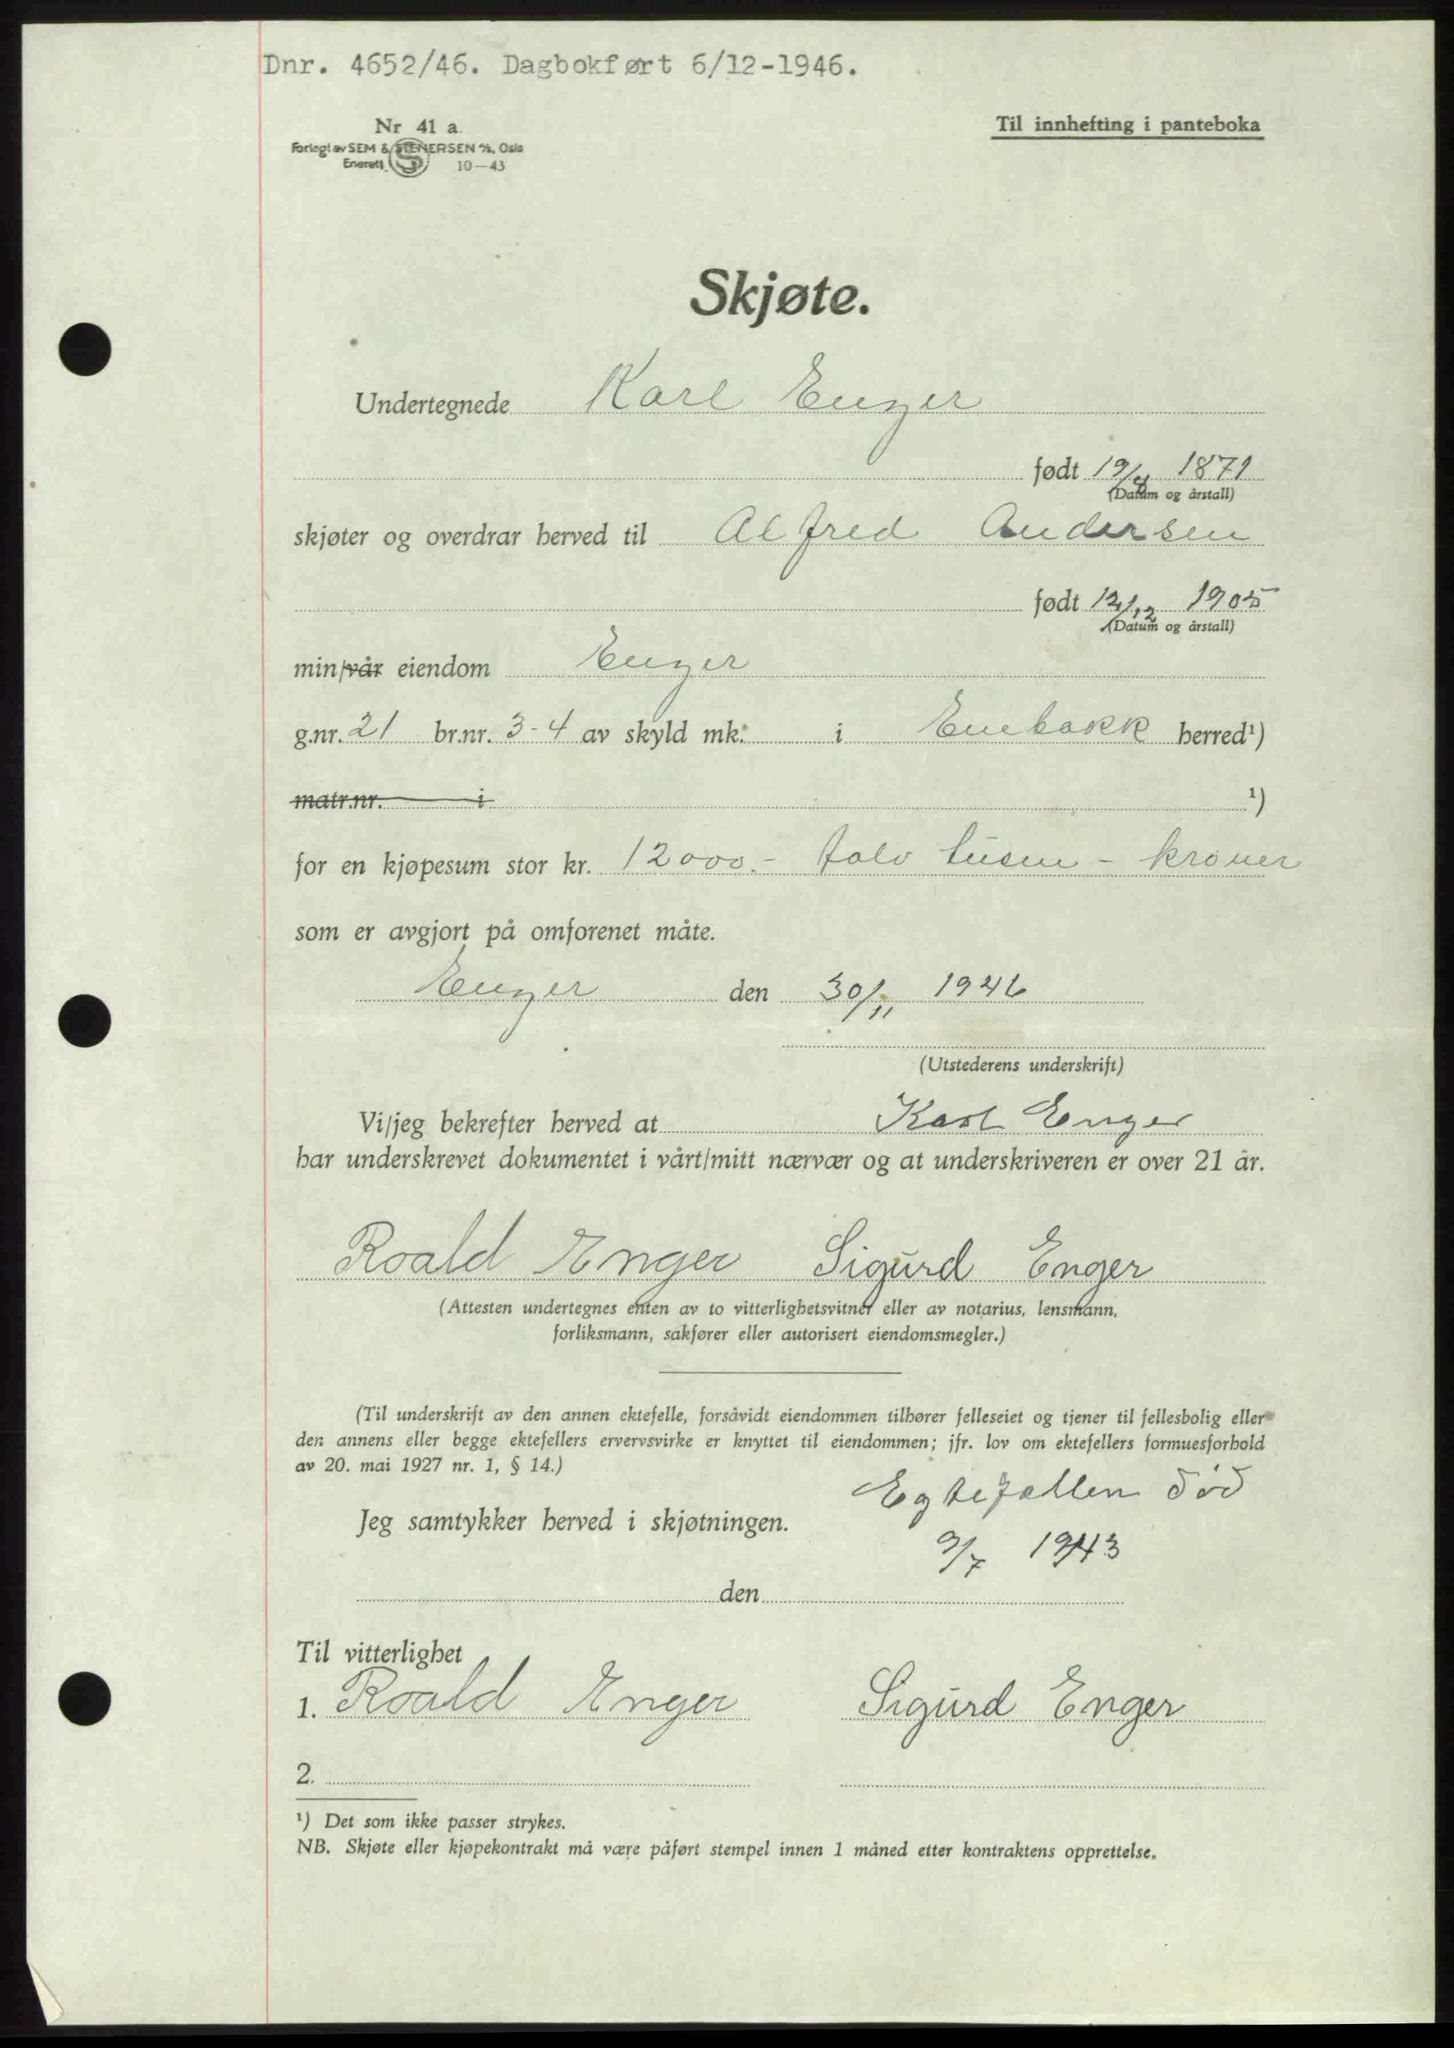 Dnr. 4652/46. Dagbokført 6/12-1946.
Nr 41 a
Forlegt av SEM & STENERSEN A/S, Oslo
Enerett S 10-43
Til innhefting i panteboka
Skjøte.
Undertegnede Karl Enger
født 19/8 1871
(Datum og årstall)
skjøter og overdrar herved til Alfred Andersen
født 12/12 1905
(Datum og årstall)
min/vår eiendom Enger
g.nr. 21 br.nr. 3-4 av skyld mk. i Enebakk herred¹)
matr.nr. i ¹)
for en kjøpesum stor kr. 12000.- tolv tusen - kroner
som er avgjort på omforenet måte.
Enger den 30/11 1946
(Utstederens underskrift)
Vi/jeg bekrefter herved at Karl Enger
har underskrevet dokumentet i vårt/mitt nærvær og at underskriveren er over 21 år.
Roald Enger Sigurd Enger
(Attesten undertegnes enten av to vitterlighetsvitner eller av notarius, lensmann,
forliksmann, sakfører eller autorisert eiendomsmegler.)
(Til underskrift av den annen ektefelle, forsåvidt eiendommen tilhører felleseiet og tjener til fellesbolig eller
den annens eller begge ektefellers ervervsvirke er knyttet til eiendommen; jfr. lov om ektefellers formuesforhold
av 20. mai 1927 nr. 1, § 14.)
Egtefellen død
Jeg samtykker herved i skjøtningen.
9/7 1943
den
Til vitterlighet
1. Roald Enger Sigurd Enger
2.
¹) Det som ikke passer strykes.
NB. Skjøte eller kjøpekontrakt må være påført stempel innen 1 måned etter kontraktens opprettelse.